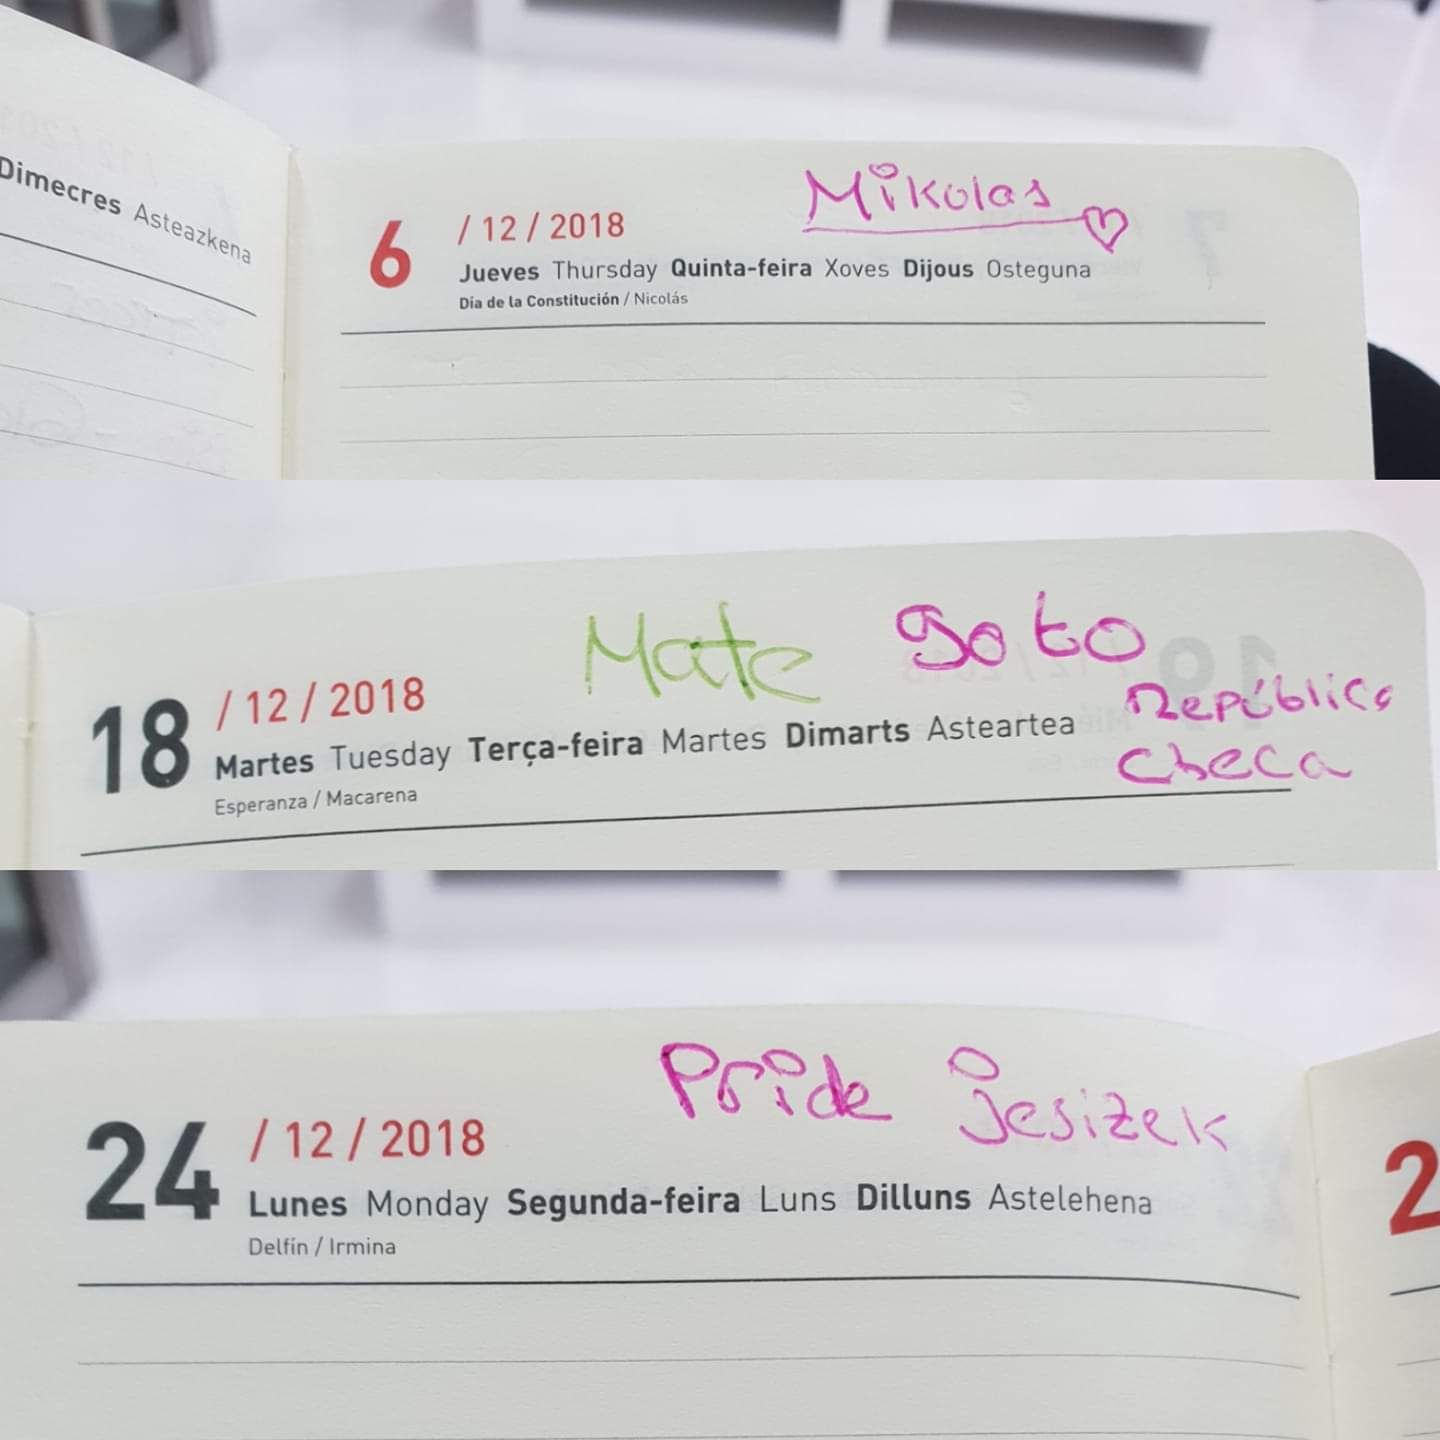 Dimecres Asteazkena
Mikolas
6 / 12 / 2018
Jueves Thursday Quinta-feira Xoves Dijous Osteguna
Día de la Constitución / Nicolás
Mate go to
República
checa
18 / 12 / 2018
Martes Tuesday Terça-feira Martes Dimarts Asteartea
Esperanza / Macarena
Pride jesizek
24 / 12 / 2018
Lunes Monday Segunda-feira Luns Dilluns Astelehena
Delfín / Irmina
2